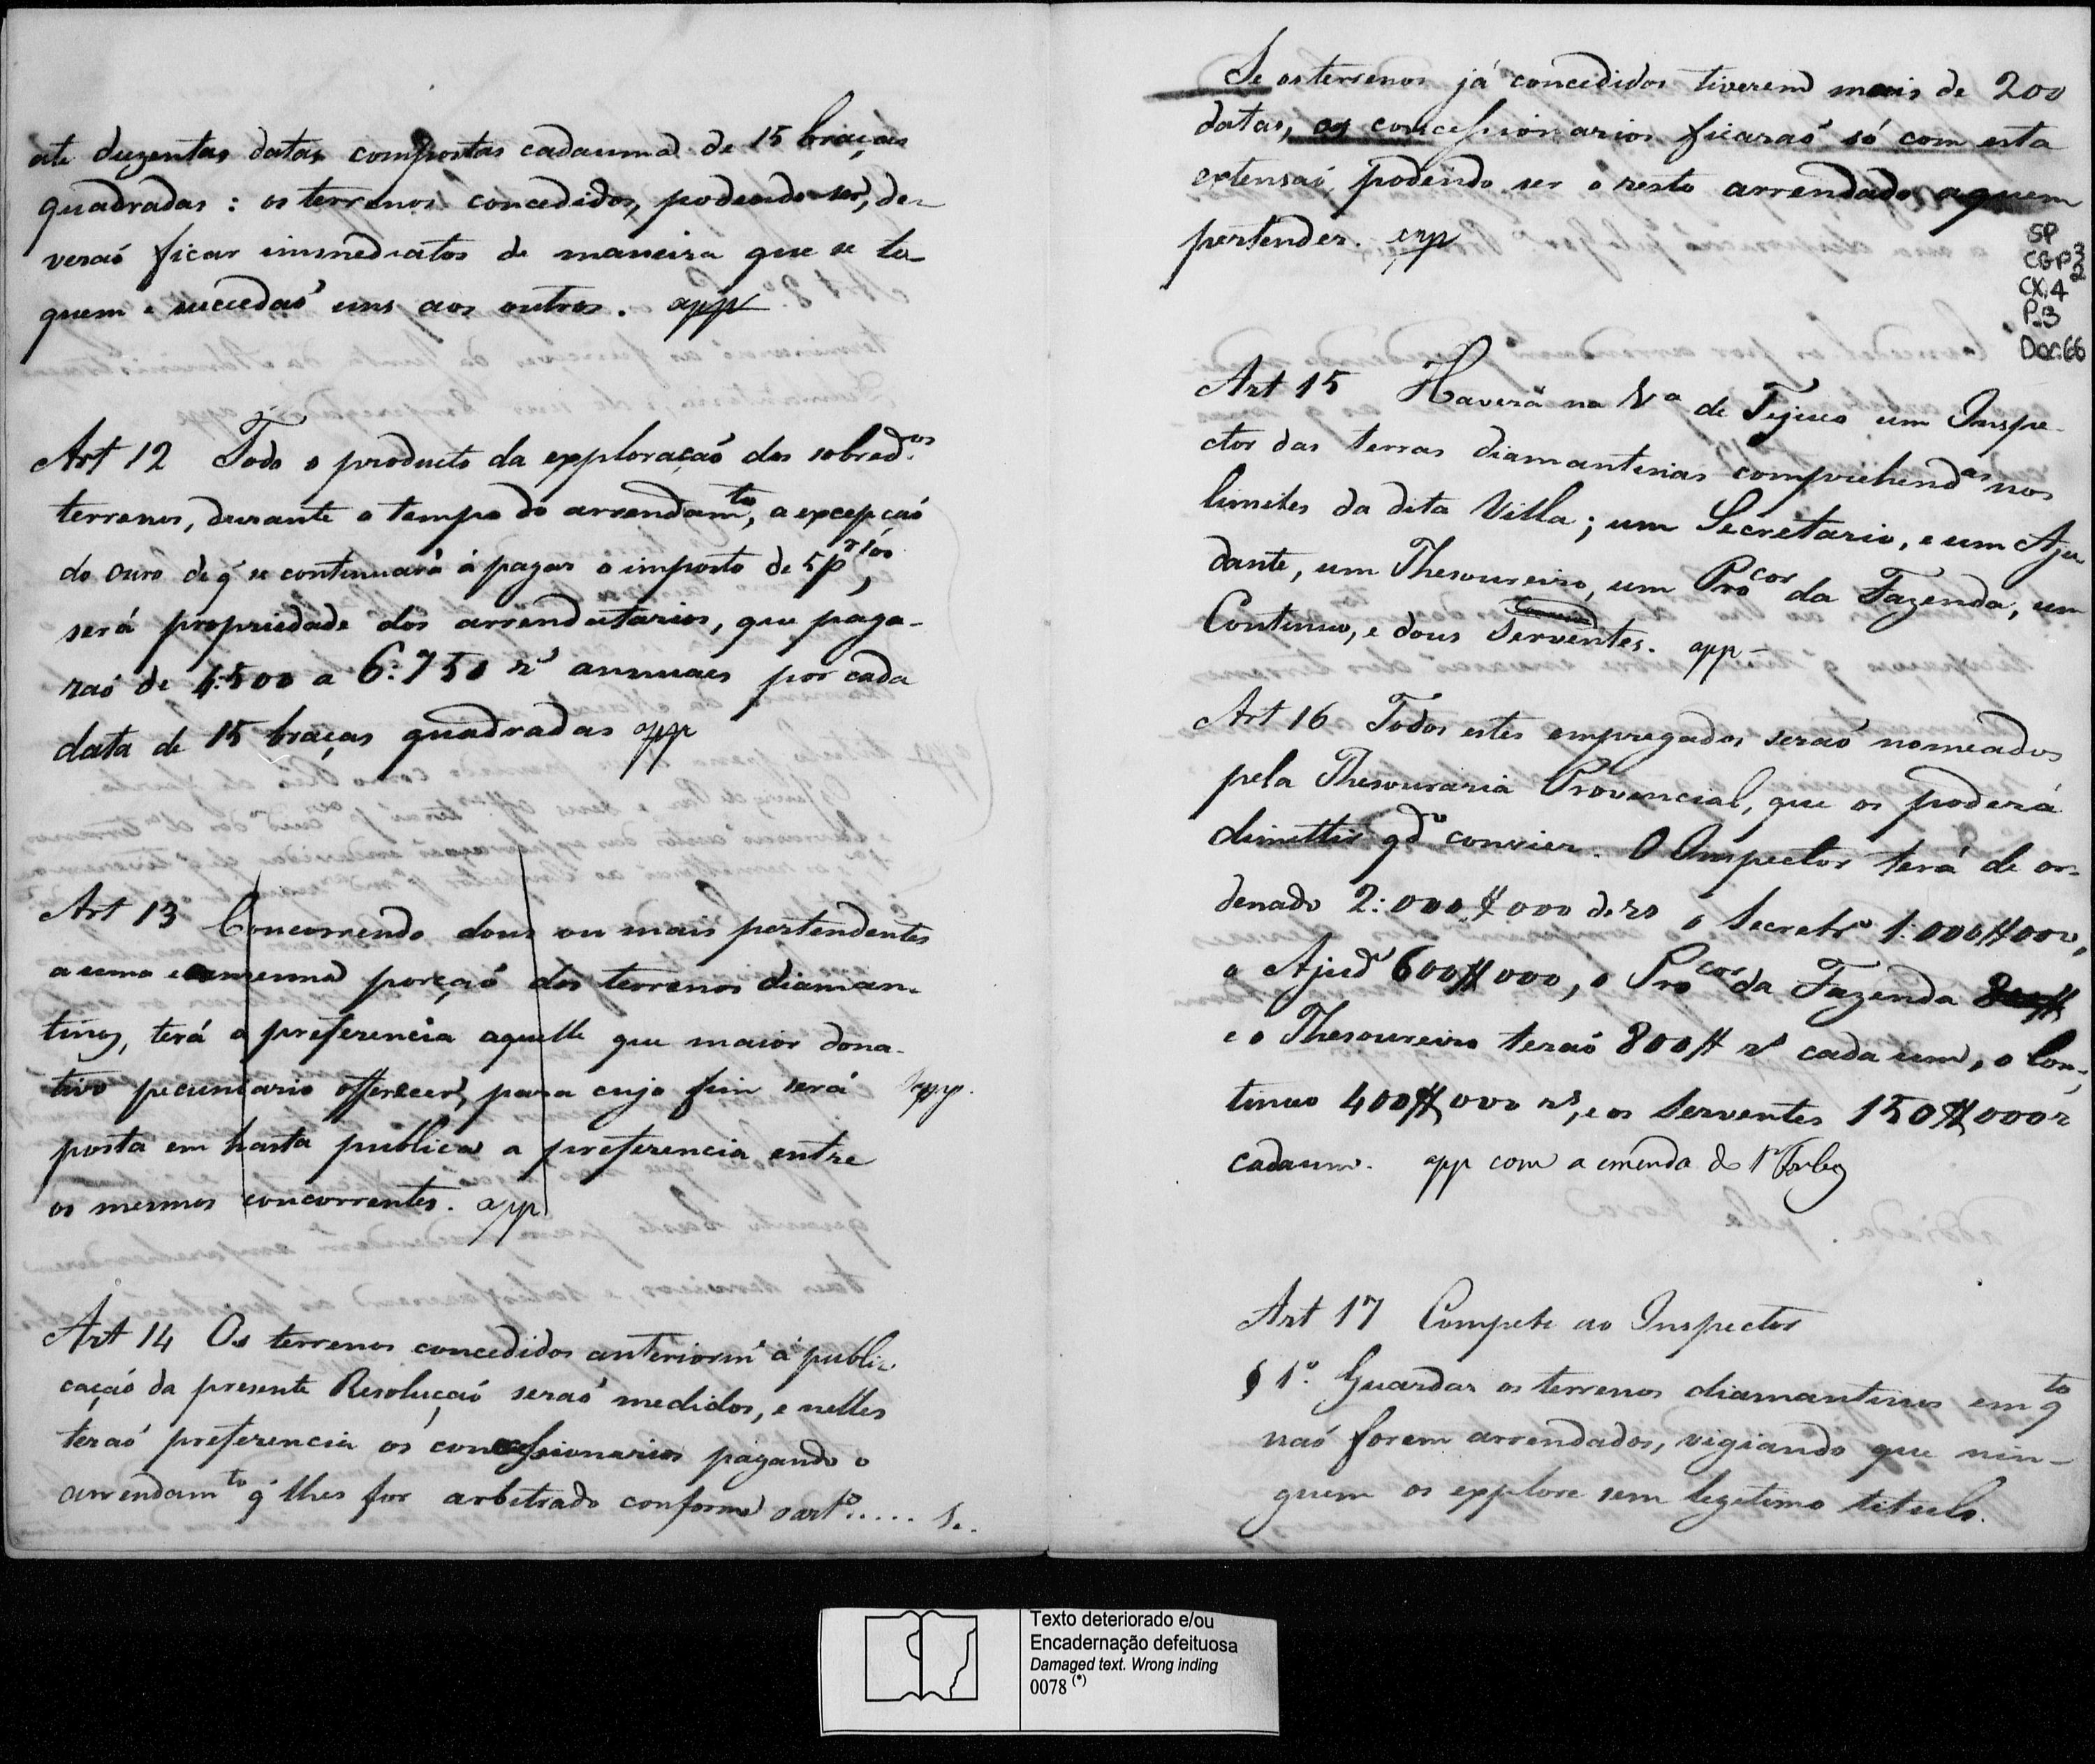 ate duzentas datas compostas cadauma de 15 braças
quadradas: os terrenos concedidos, podendo ser, de-
veraõ ficar immediatos de maneira que se to
quem e succedaõ uns aos outros. app
Art 12 Todo o producto da exploraçaõ dos sobred.os
terrenos, durante o tempo do arrendam.to, a excepçaõ
do ouro de q̃ se continuará á pagar o imposto de 5 p
será propriedade dos arrendatarios, que paga-
raõ de 4:500 a 6:750 rs annuaes por cada
data de 15 braças quadradas app
Art 13 Concorrendo dous ou mais pertendentes
a uma e mesma porçaõ dos terrenos diaman-
tinos, terá a preferencia aquelle que maior dona-
tivo pecuniario offerecer, para cujo fim será
posta em hasta publica a preferencia entre
os mesmos concorrentes. app
app.
Art 14 Os terrenos concedidos anteriorm.e á publi-
caçaõ da presente Resoluçaõ seraõ medidos, e nelles
teraõ preferencia os concessionarios pagando o
arrendam.to q̃ lhes for arbitrado conforme o art.o ..... Se..
Se os terrenos já concedidos tiverem mais de 200
datas, os concessionarios ficaraõ só com esta
extensaõ, podendo ser o resto arrendado aquem
pertender. app
SP
CGP3
2
CX.4
P.3
Doc.66
Art 15 Haverá na V.a de Tejuco um Inspe-
ctor das terras diamantinas comprehend.as nos
limites da dita Villa; um Secretario, e um Aju-
dante, um Thesoureiro, um Pro.cor da Fazenda, um
Continuo, e dous Serventes. app -
Art 16 Todos estes empregados seraõ nomeados
pela Thesouraria Provencial, que os poderá
dimittir qd.o convier. O Inspector terá de or-
denado 2:000$000 de rs o Secretr.o 1:000$000,
o Ajud.e 600$000, o Pro.cor da Fazenda 800$
e o Thesoureiro teraõ 800$ rs cada um, o Con-
tinuo 400$000 rs, e os Serventes 150$000 r
cadaum. app com a emenda do Sr
Art 17 Compete ao Inspector
§ 1.o Guardar os terrenos diamantinos em q.to
naõ forem arrendados, vigiando que nin-
guem os explore sem legetimo titulo.
Texto deteriorado e/ou
Encadernação defeituosa
Damaged text. Wrong inding
0078 (*)